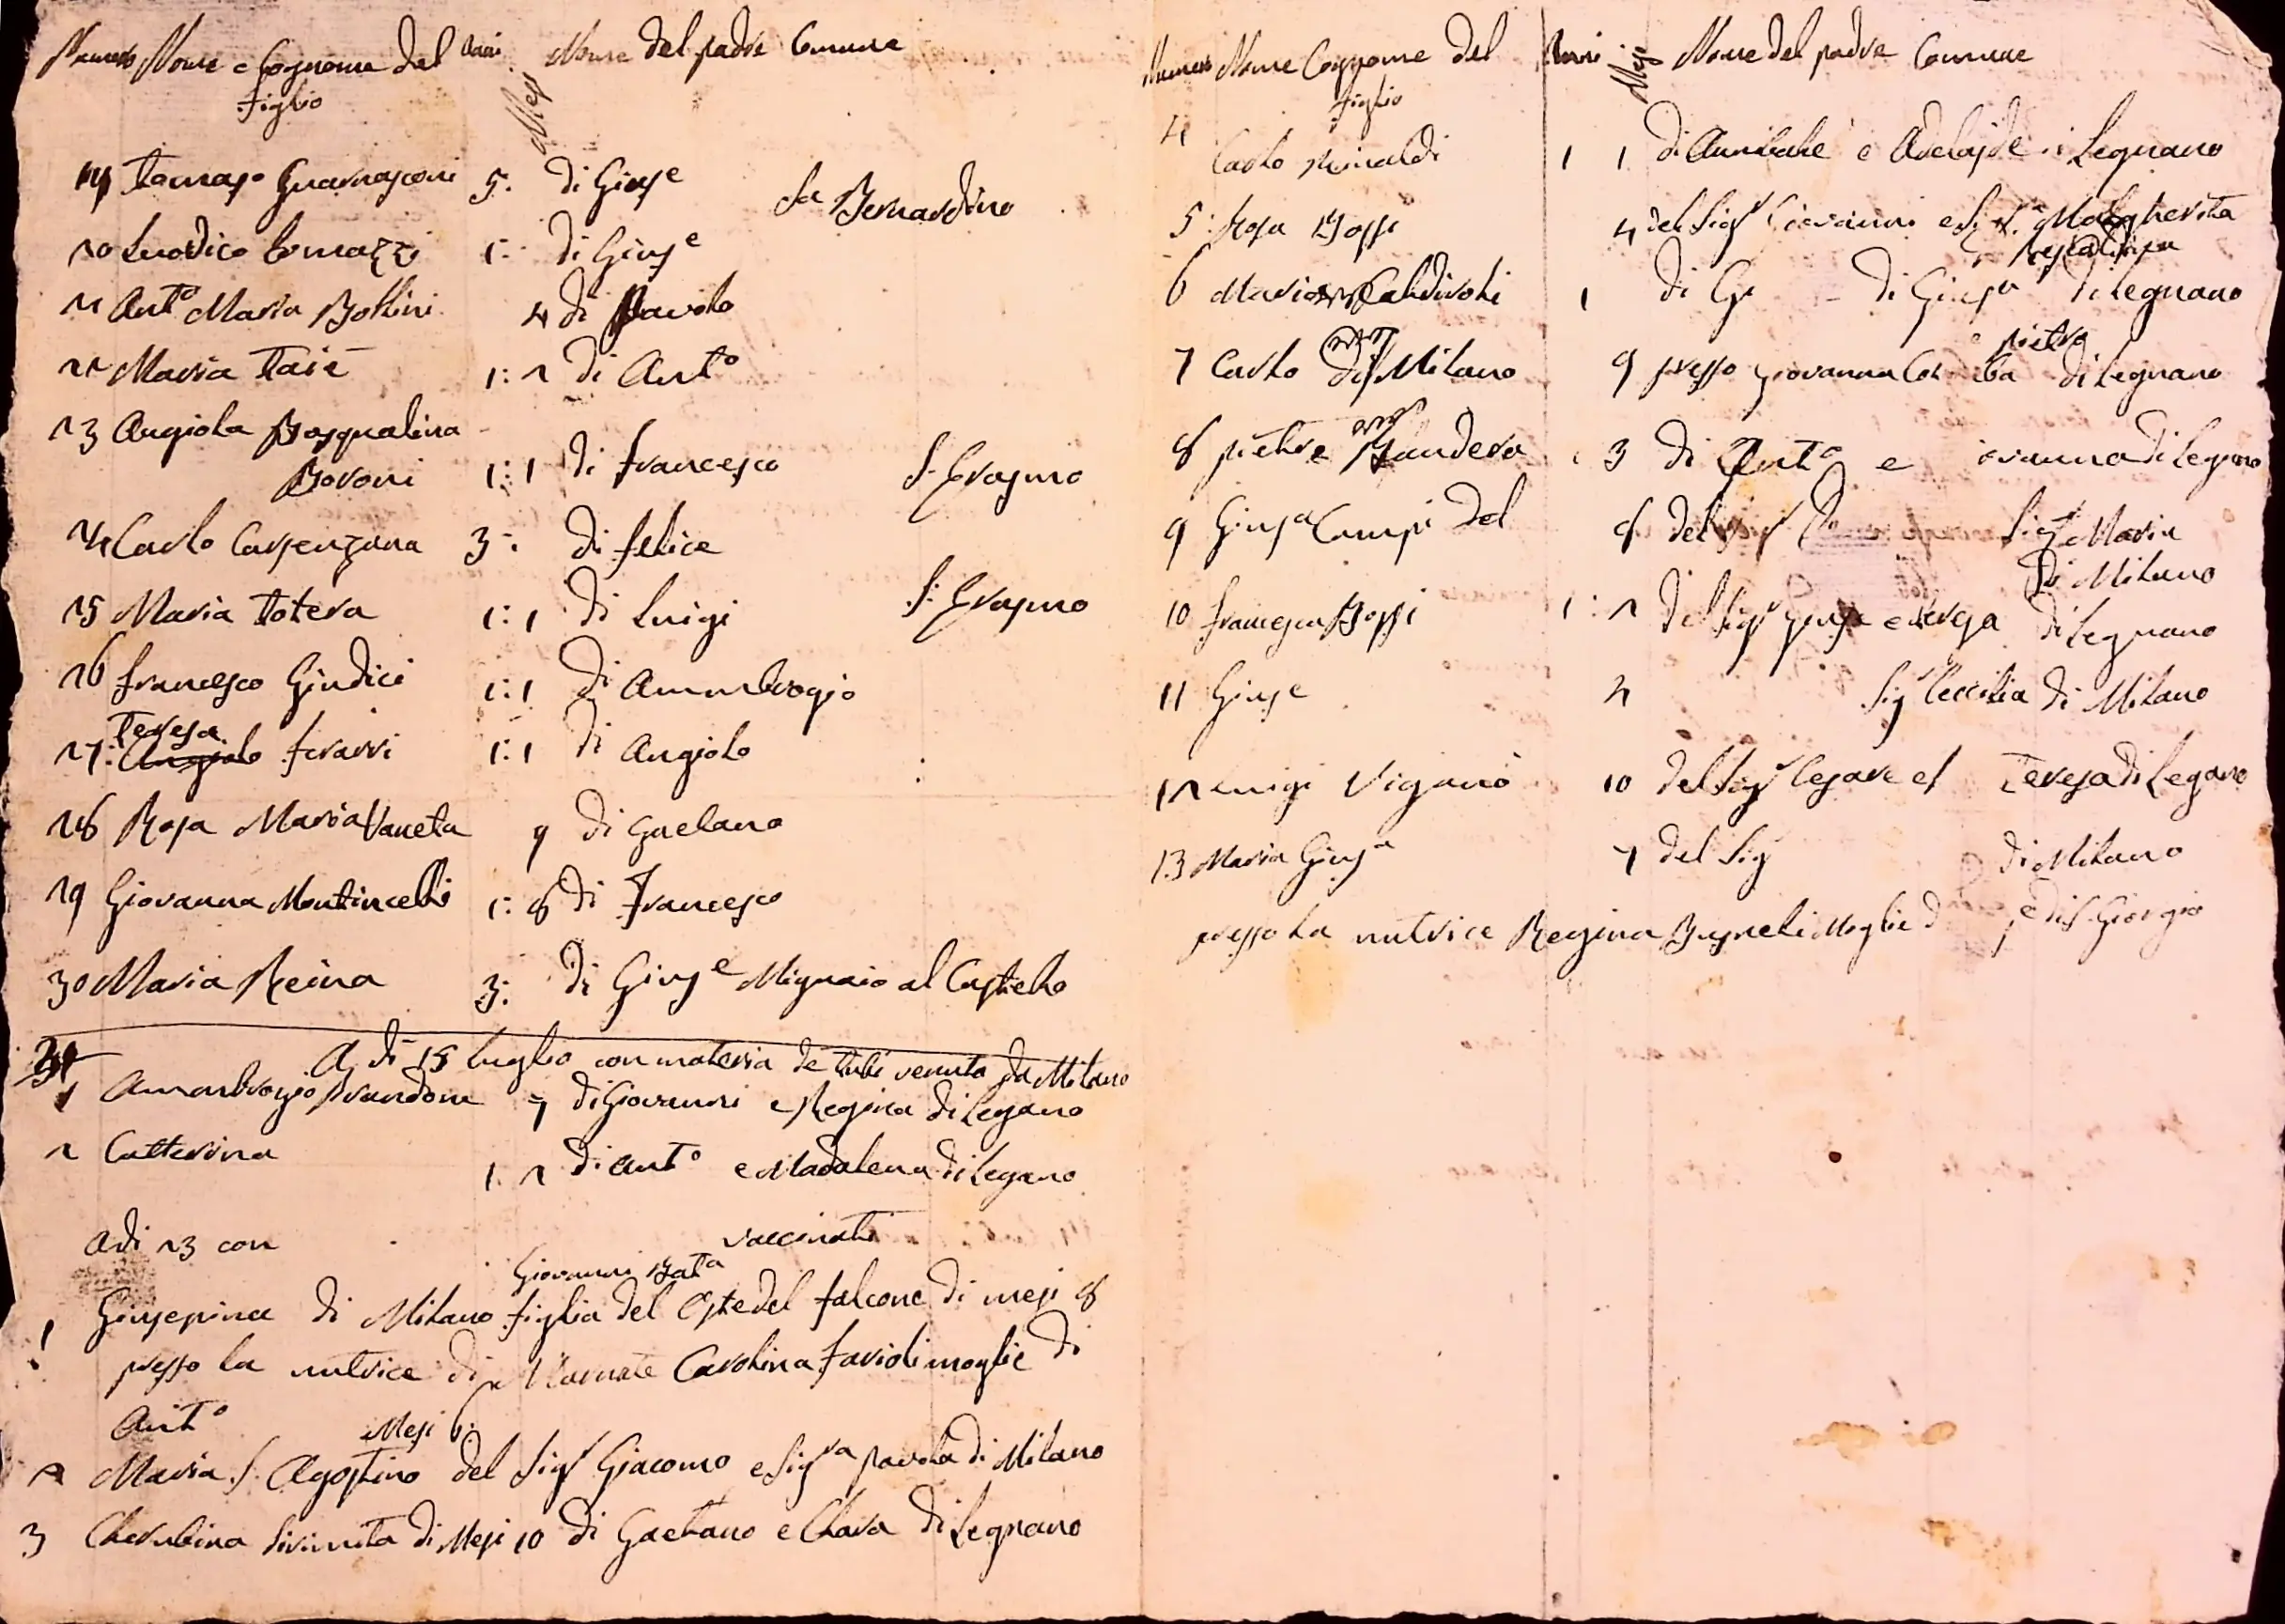 Numero Nome e Cognome del Anni Mesi Nome del padre Comune
figlio
19 Tomaso Guarnasconi 5: di Giuse Sn Bernardino
20 Luodico Comazzi 1: di Giuse
21 Anto Maria Bollini 4 di Pavolo
22 Maria Taié 1: 2 di Anto
23 Angiola Pasqualina
Boroni 1: 1 di Francesco S. Erasmo
24 Carlo Carsenzana 3: di Felice
25 Maria Totera 1: 1 di Luigi S: Erasmo
26 Francesco Giudici 1: 1 di Ammbrogio
Teresa
27: Angiolo Ferarri 1: 1 di Angiolo
28 Rosa Maria Vaneta 9 di Gaelano
29 Giovanna Montincelli 1: 8 di Francesco
30 Maria Reina 3: di Giuse Mignaio al Castello
31
A di 15 Luglio con materia de Tubi venuta da Milano
1 Ammbrogio Prandoni 7 di Giovanni e Regina di Legano
2 Catterina 1. 2 di Anto e Madalena di Legano
Adi 23 con vaccinati
Giovanni Bata
1 Giusepina di Milano figlia del Oste del Falcone di mesi 8
presso la nutrice di Marnate Carolina Farioli moglie di
Anto Mesi 6:
2 Maria S. Agostino del Sigr Giacomo e Sigra Pavola di Milano
3 Cherubina Sirinnita di Mesi 10 di Gaetano e Clara di Legnano
Numero Nome Cognome del Anni Mesi Nome del padre Comune
figlio
4 Carlo Rinaldi 1 1 di Annibale e Adelajde Legnano
5: Rosa Bossi 4 del Sigr Giovanni e Margherita
6 Maria Caldiroli 1 di Gi di Giusa di Legnano
pietro
7 Carlo di Milano 9 presso Giovanna Co ba di Legnano
8 pietro Bandera 3 di Anto e ovanna di Legnano
9 Giusa Campi del 8 del Siga Maria
di Milano
10 Francesca Bossi 1: 2 del Sigr Giuse e Teresa di Legnano
11 Giuse 4 Sigr Cecilia di Milano
12 Luigi Viganò 10 del Sigr Cesare e S Teresa di Legano
13 Maria Giusa 7 del Sig di Milano
presso la nutrice Regina Bugneli Moglie d e di S. Giorgio